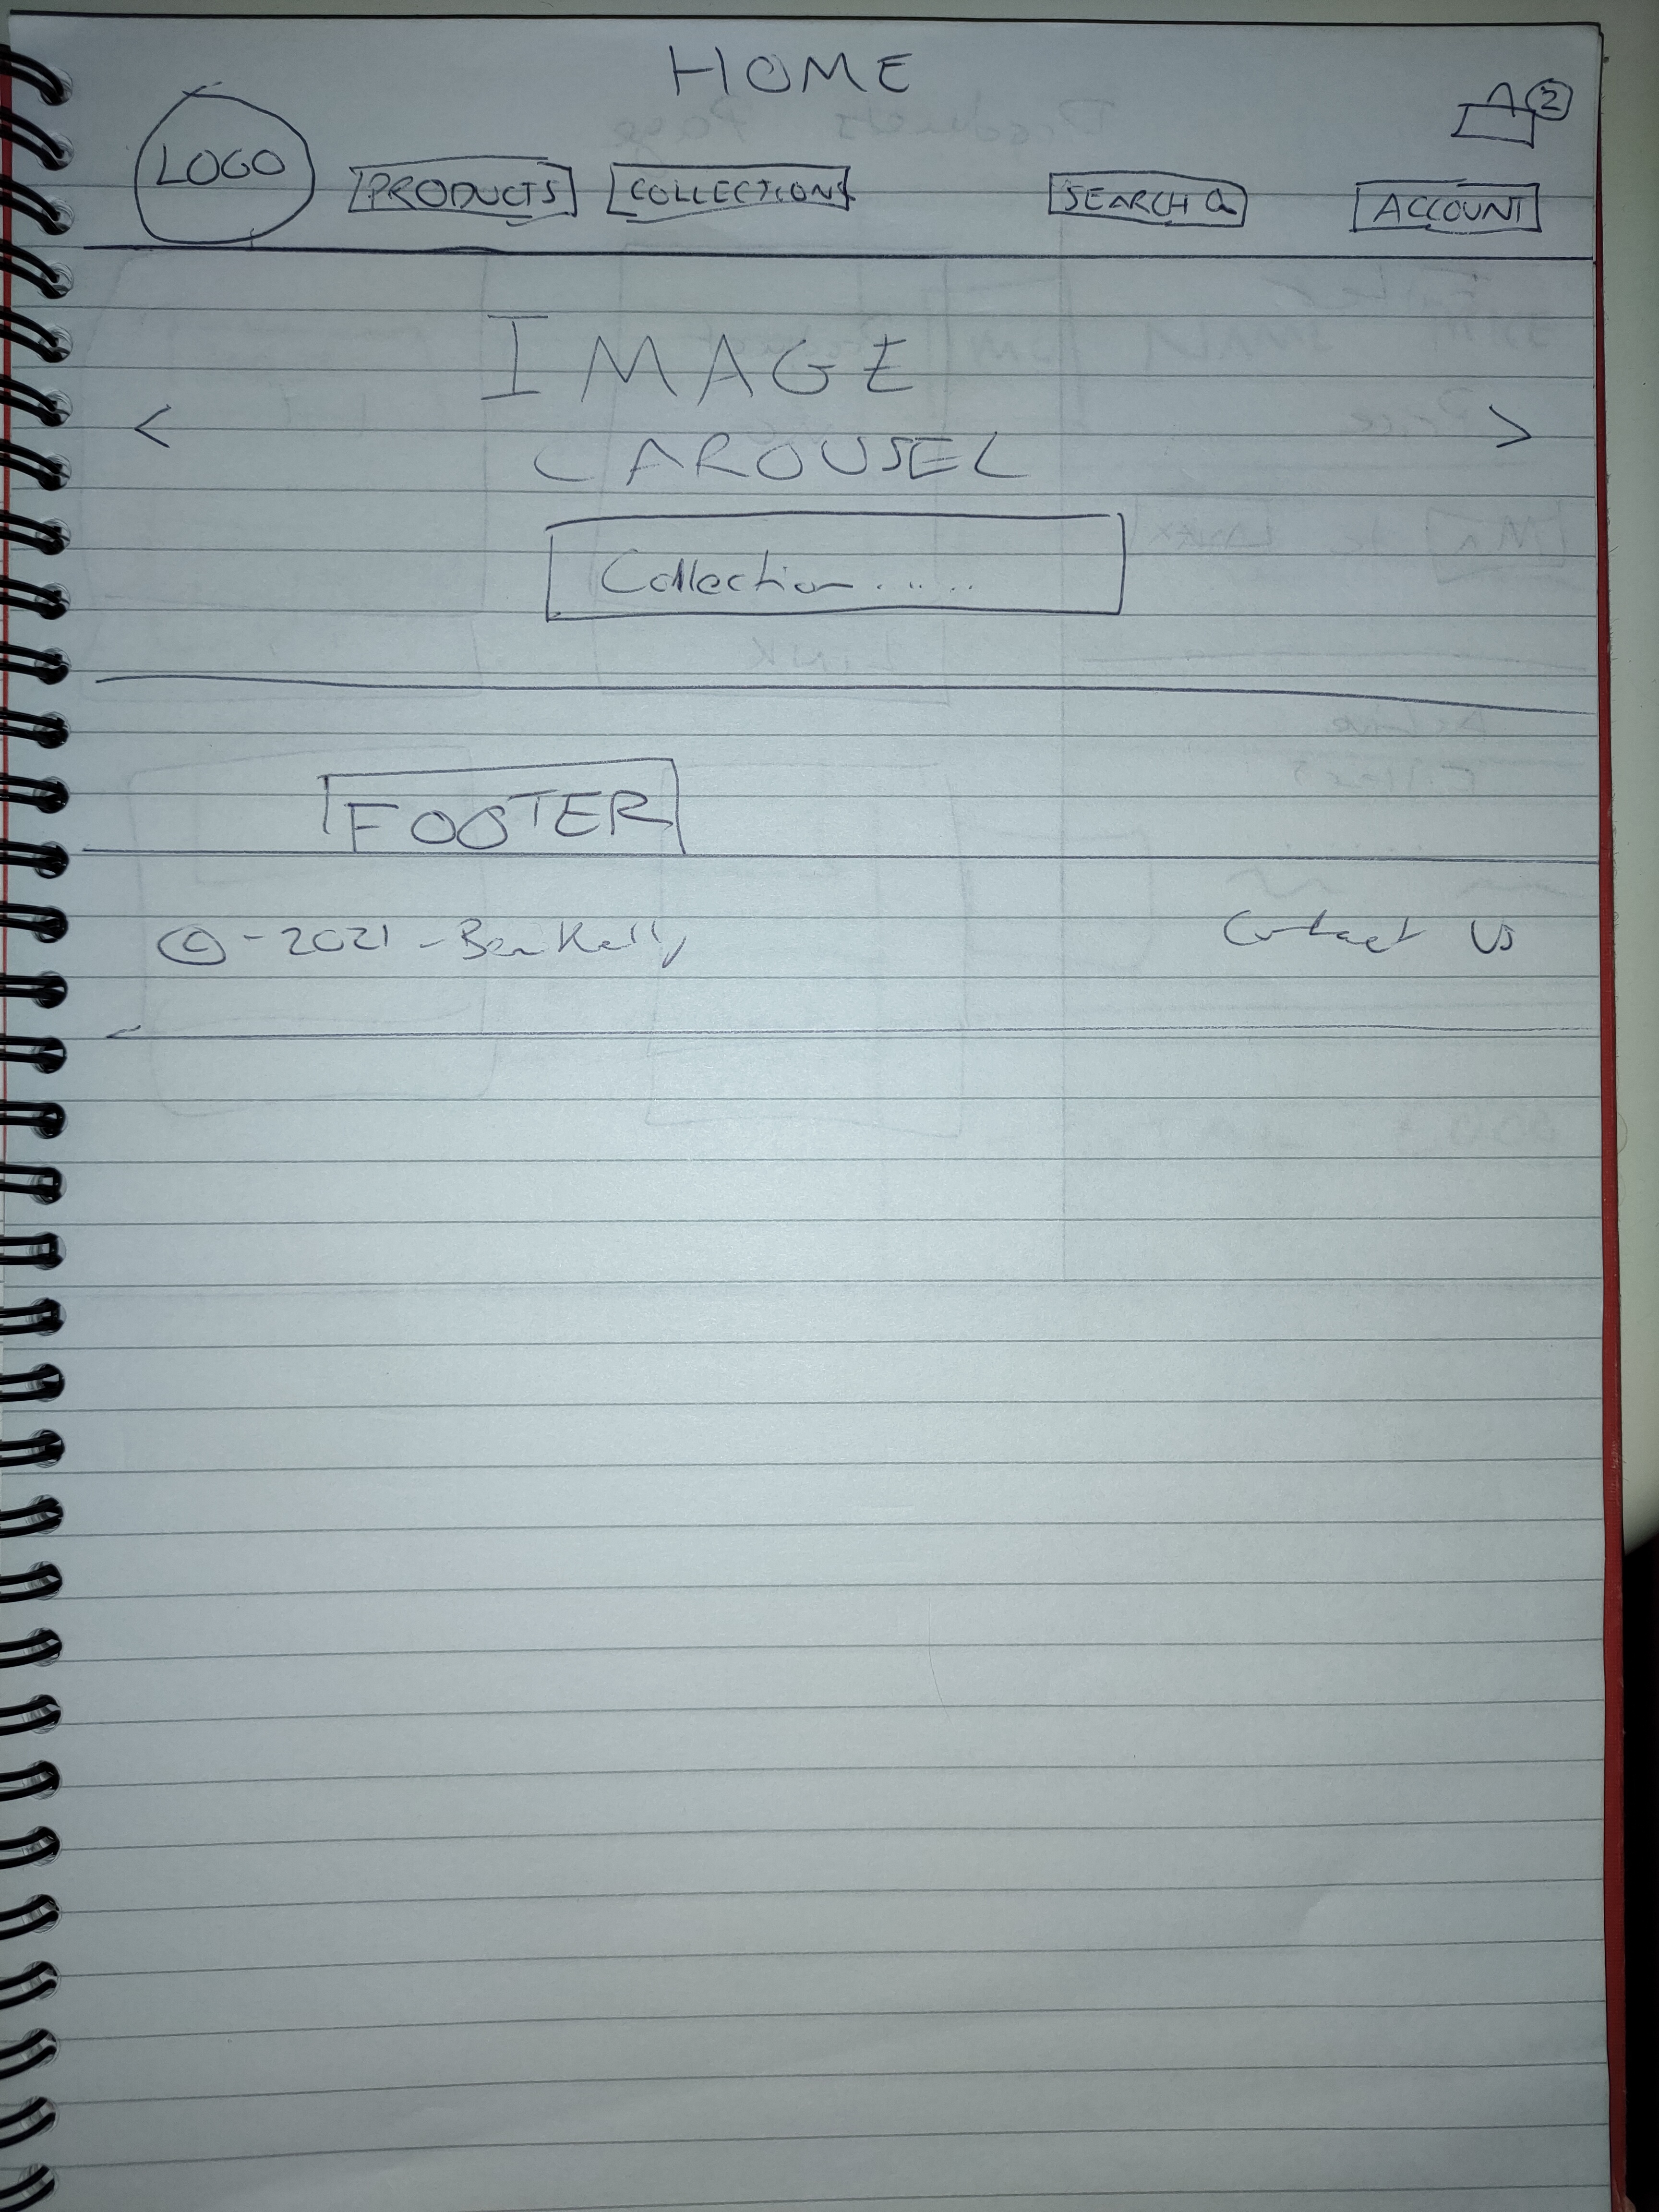 HOME
2
LOGO PRODUCTS COLLECTIONS SEARCH ACCOUNT
IMAGE
< >
CAROUSEL
Collection......
FOOTER
© - 2021 - Ben Kelly Contact Us